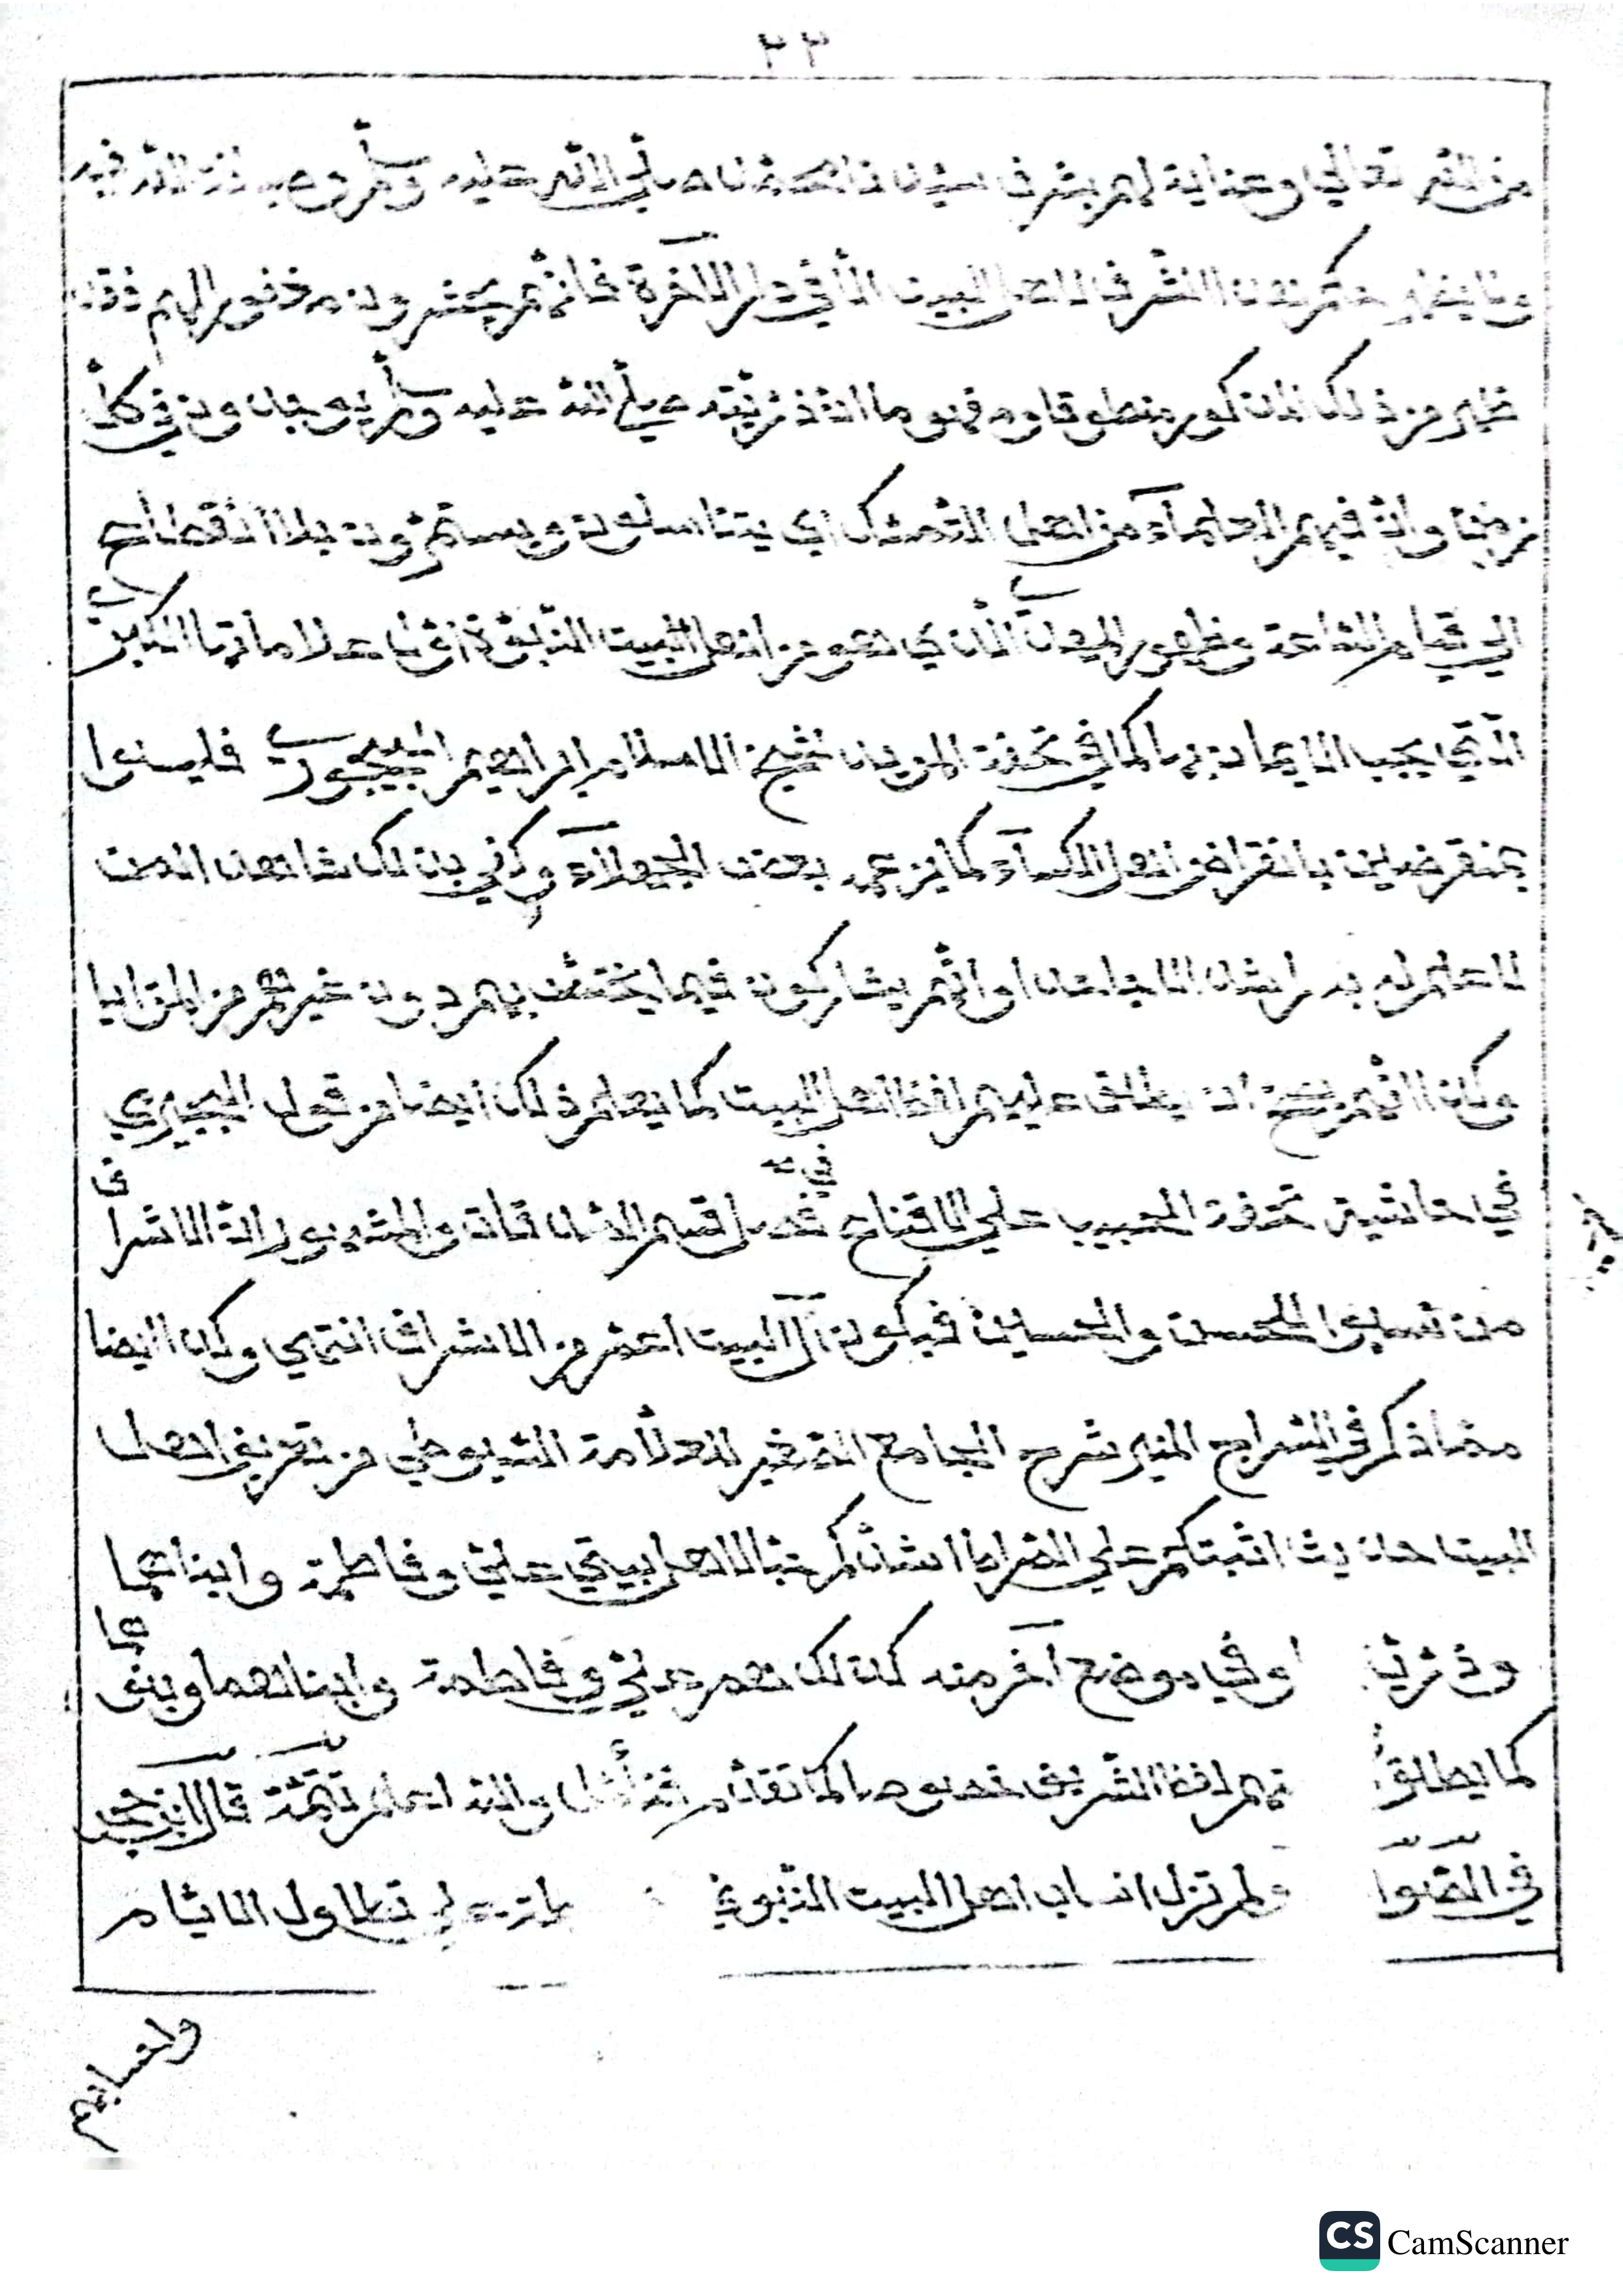 ٢٣
من الله تعالي وعناية لهم بشرف سيدنا محمد صلي الله عليه وسلم
الشرف لاهل البيت الا في دار الاخرة فانهم يحشرون مغفورا لهم فقد
ظهر من ذلك المذكور منطوقا ومفهوما ان ذريته صلي الله عليه وسلم يوجدون في كل
زمن وان فيهم العلماء من اهل التمسك اي يتناسلون ويستمرون بلا انقطاع
الي قيام الساعة وظهور المهدي الذي هو من اهل البيت النبوة اول علاماتها الكبري
التي يجب الايمان بها كما في تحفة المريد لشيخ الاسلام ابراهيم البيجوري فليسوا
بمنقرضين بانقراض اهل الكساء كما يزعمه بعض الجهلاء وكفي بذلك شاهدا لمن
لا علم له اوانهم يشاركون فيما يختص بهم دون غيرهم من المزايا
وكذا انهم يصح ان يطلق عليهم لفظ اهل البيت كما يعلم ذلك ايضا من قول البجيرمي
في حاشية تحفة الحبيب علي الاقناع في فصل قسم الصدقات والمشهور ان الاشراف
من نسبوا للحسن والحسين فيكون آل البيت اعم من الاشراف انتهي وكذا ايضا
مما ذكر في السراج المنير شرح الجامع الصغير للعلامة السيوطي من تعريف اهل
البيت حديث اثبتكم علي الصراط اشدكم حبا لاهل بيتي علي وفاطمة وابناهما
وذريت او في موضع آخر منه كذلك هم علي وفاطمة وابناهما وبنوهما
كما يطلق هم لفظ الشريف خصوصا كما تقدم فتأمل والله اعلم تتمة قال ابن حجر
في الصوا ولم تزل انساب اهل البيت النبوي علي تطاول الايام
وانسابهم
CS CamScanner